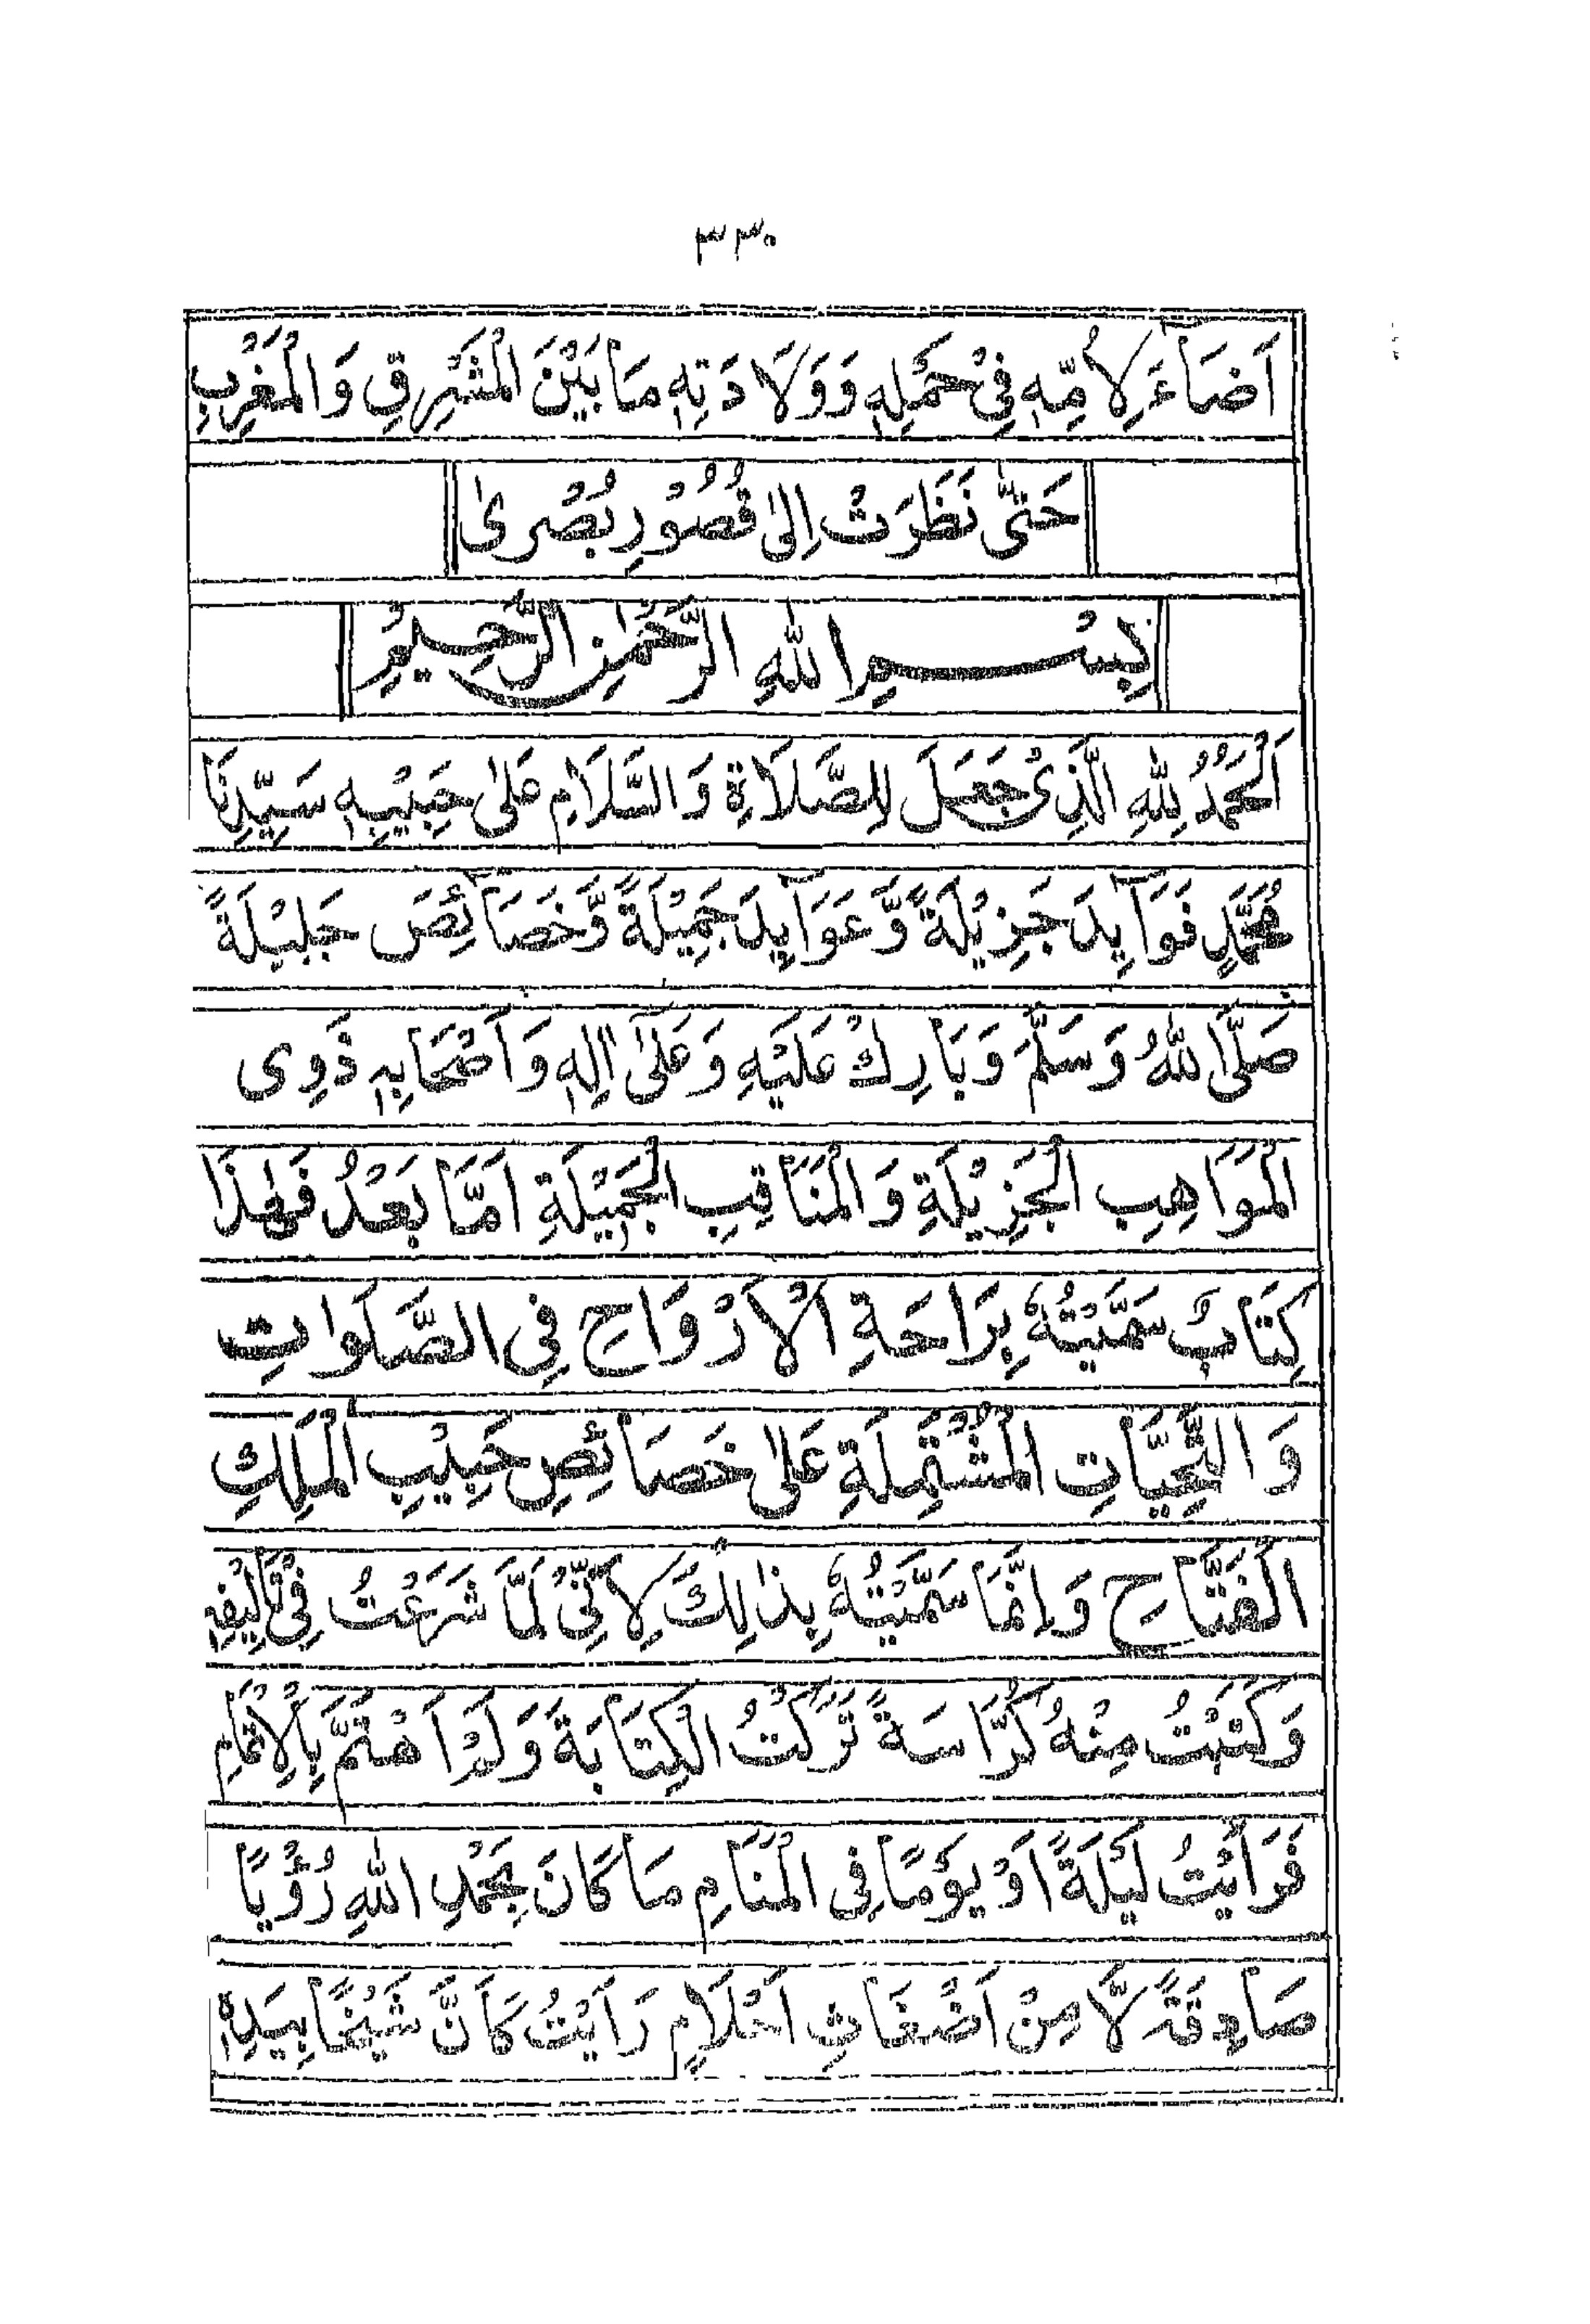 ٣٣٠
اَضَآءَ لِاُمِّهٖ فِیْ حَمْلِهٖ وَوَلَادَتِهٖ مَا بَيْنَ الْمَشْرِقِ وَالْمَغْرِبِ
حَتّٰى نَظَرَتْ اِلٰى قُصُوْرِ بُصْرىٰ
بِسْمِ اللهِ الرَّحْمٰنِ الرَّحِيْمِ
اَلْحَمْدُ لِلّٰهِ الَّذِىْ جَعَلَ لِلصَّلَاةِ وَالسَّلَامِ عَلىٰ حَبِيْبِهٖ سَيِّدِنَا
مُحَمَّدٍ فَوَآىِٕدَ جَزِيْلَةً وَّعَوَآىِٕدَ جَمِيْلَةً وَّخَصَآئِصَ جَلِيْلَةً
صَلَّى اللهُ وَسَلَّمَ وَبَارِكْ عَلَيْهِ وَعَلىٰٓ اٰلِهٖ وَاَصْحَابِهٖ ذَوِى
الْمَوَاهِبِ الْجَزِيْلَةِ وَالْمَنَاقِبِ الْجَمِيْلَةِ اَمَّا بَعْدُ فَهٰذَا
كِتَابٌ سَمَّيْتُهٗ بِرَاحَةِ الْاَرْوَاحِ فِى الصَّلَوَاتِ
وَالتَّحِيَّاتِ الْمُشْتَمِلَةِ عَلىٰ خَصَائِصِ حَبِيْبِ الْمَلِكِ
الْفَتَّاحِ وَاِنَّمَا سَمَّيْتُهٗ بِذٰلِكَ لِاَنِّىْ لَمَّا شَرَعْتُ فِىْ تَالِيْفِهٖ
وَكَتَبْتُ مِنْهُ كُرَّاسَةً تَرَكْتُ الْكِتَابَةَ وَلَمْ اَهْتَمَّ بِالْاِتْمَامِ
فَرَاَيْتُ لَيْلَةً اَوْ يَوْمًا فِى الْمَنَامِ مَا كَانَ بِحَمْدِ اللهِ رُؤْيًا
صَادِقَةً لَّا مِنْ اَضْغَاثِ اَحْلَامٍ رَاَيْتُ كَاَنَّ شَيْخًا بِيَدِهٖ